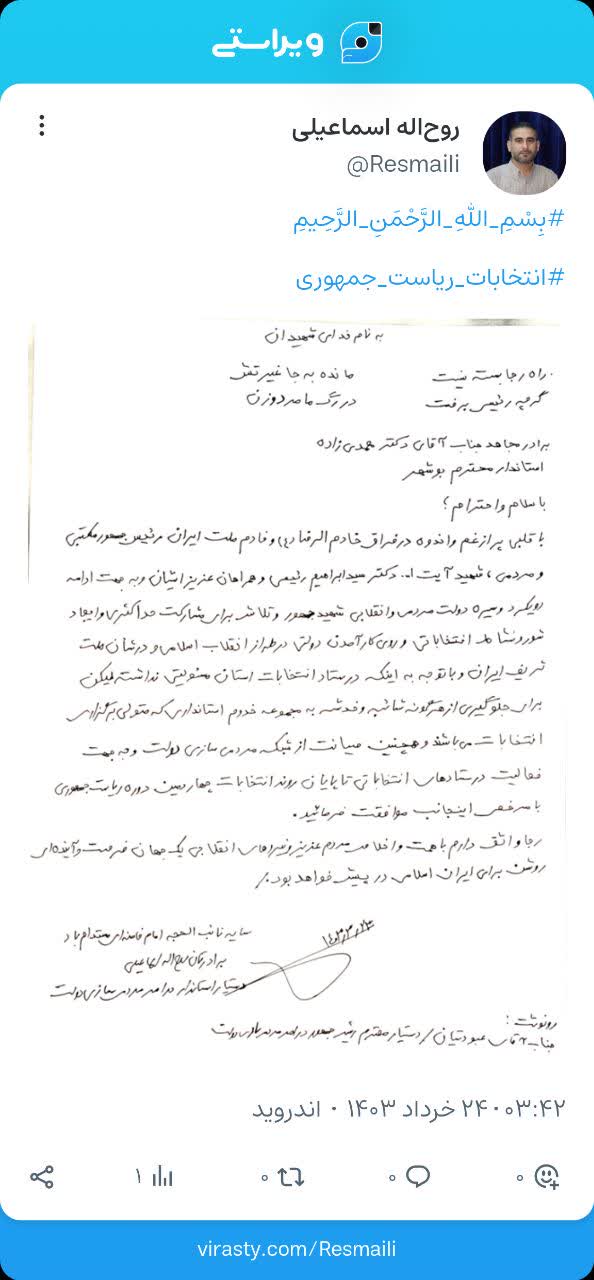 ویراستی
روح‌اله اسماعیلی
@Resmaili
#بِسْمِ_اللهِ_الرَّحْمَنِ_الرَّحِیمِ
#انتخابات_ریاست_جمهوری
به نام خدای شهیدان
راه رجا بسته نیست مانده به جا غیرتش
گرچه رئیسی برفت در رگ ما مرد و زن
برادر مجاهد جناب آقای دکتر محمدی زاده
استاندار محترم بوشهر
با سلام و احترام؛
با قلبی پر از غم و اندوه در فراق خادم الرضا(ع) و خادم ملت ایران رئیس جمهور مکتبی
و مردمی، شهید آیت ا... دکتر سید ابراهیم رئیسی و همراهان عزیز ایشان و به جهت ادامه
رویکرد و سیره دولت مردمی و انقلابی شهید جمهور و تلاش برای مشارکت حداکثری و ایجاد
شور و نشاط انتخاباتی و روی کار آمدن دولتی در طراز انقلاب اسلامی و در شان ملت
شریف ایران و با توجه به اینکه در ستاد انتخابات استان مسئولیتی نداشته لیکن
برای جلوگیری از هرگونه شائبه و خدشه به مجموعه خدوم استانداری که متولی برگزاری
انتخابات می باشد و همچنین صیانت از شبکه مردمی سازی دولت و به جهت
فعالیت در ستادهای انتخاباتی تا پایان روند انتخابات چهاردهمین دوره ریاست جمهوری
با مرخصی اینجانب موافقت فرمائید.
رجا واثق دارم با همت و اخلاص مردم عزیز و نیروهای انقلابی یک جهان فرصت و آینده‌ای
روشن برای ایران اسلامی در پیش خواهد بود./
سایه نائب الحجه امام خامنه‌ای مستدام باد
برادرتان روح اله اسماعیلی
دستیار استاندار در امر مردمی سازی دولت
رونوشت:
جناب آقای عبودتیان / دستیار محترم رئیس جمهور در امر مردمی سازی دولت
۰۳:۴۲ ۲۴ خرداد ۱۴۰۳ · اندروید
۰ ۰ ۰ ۱
virasty.com/Resmaili